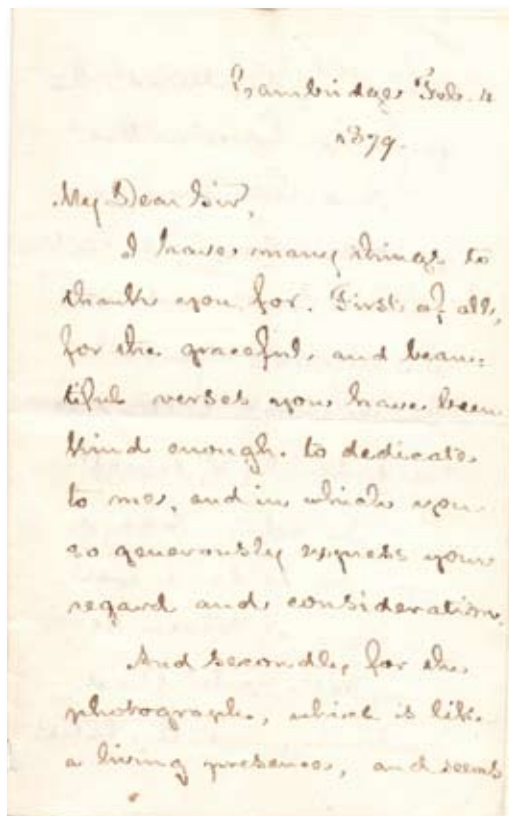 Cambridge Feb. 4
1879.
My Dear Sir,
I have many things to
thank you for. First of all,
for the graceful and beau-
tiful verses you have been
kind enough to dedicate
to me, and in which you
so generously express your
regard and consideration.
And secondly, for the
photograph, which is like
a living presence, and seems